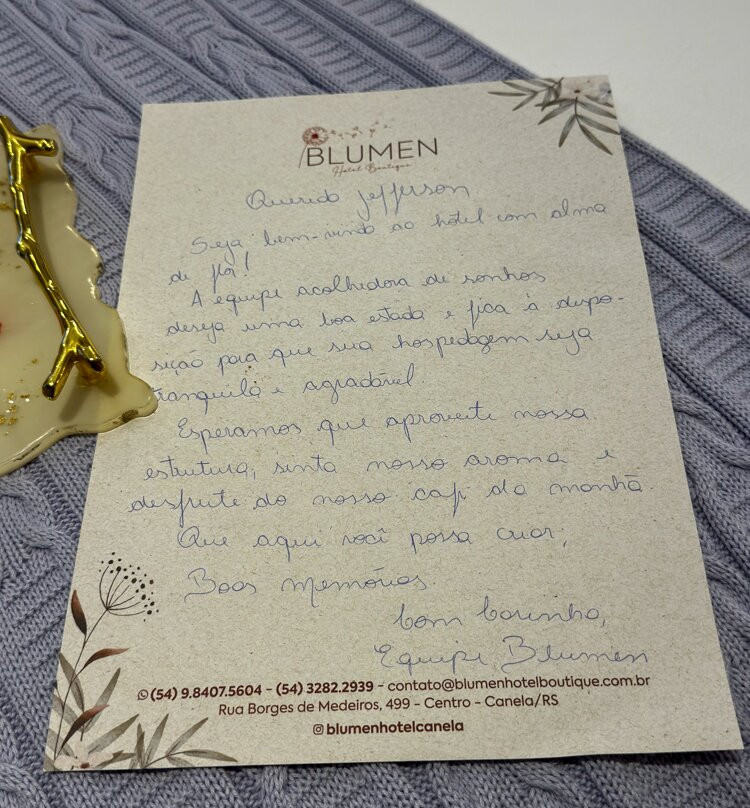 BLUMEN
Hotel Boutique
Querido Jefferson
Seja bem-vindo ao hotel com alma
de flor!
A equipe acolhedora de sonhos
deseja uma boa estada e fica à dispo-
sição para que sua hospedagem seja
tranquila e agradável
Esperamos que aproveite nossa
estrutura, sinta nosso aroma e
desfrute do nosso café da manhã.
Que aqui você possa criar,
Boas memórias.
Com Carinho,
Equipe Blumen
(54) 9.8407.5604 - (54) 3282.2939 - contato@blumenhotelboutique.com.br
Rua Borges de Medeiros, 499 - Centro - Canela/RS
blumenhotelcanela